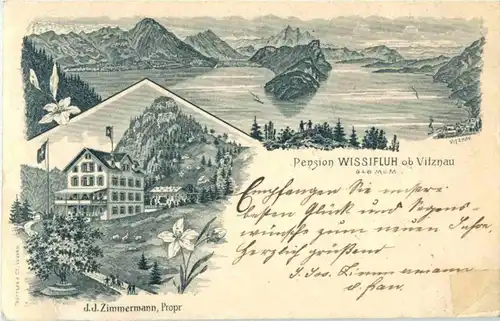 Vitznau
Pension WISSIFLUH ob Vitznau
946 M.ü.M.
Empfangen Sie unsere
besten Glück und Segens-
wünsche zum neuen Jahre
Herzlich grüßend
J. Jos. Zimmermann
J. J. Zimmermann, Propr